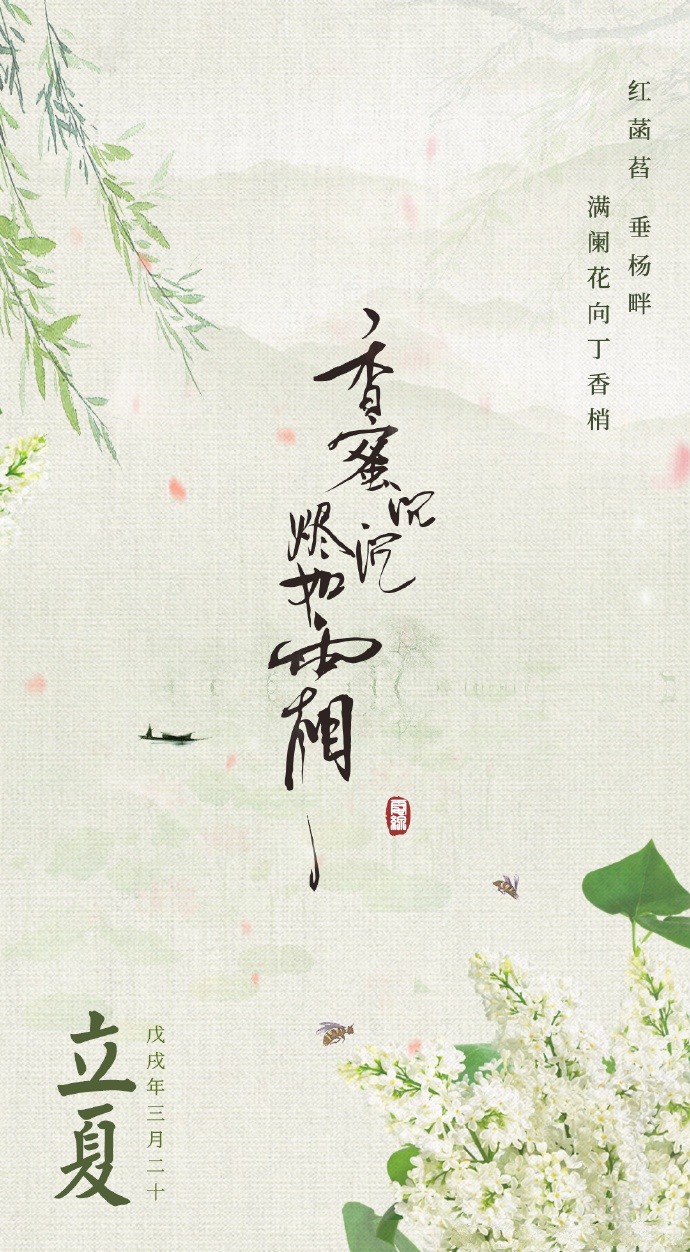 红菡萏 垂杨畔
满阑花向丁香梢
香蜜沉沉
烬如霜
戊戌年三月二十
立夏